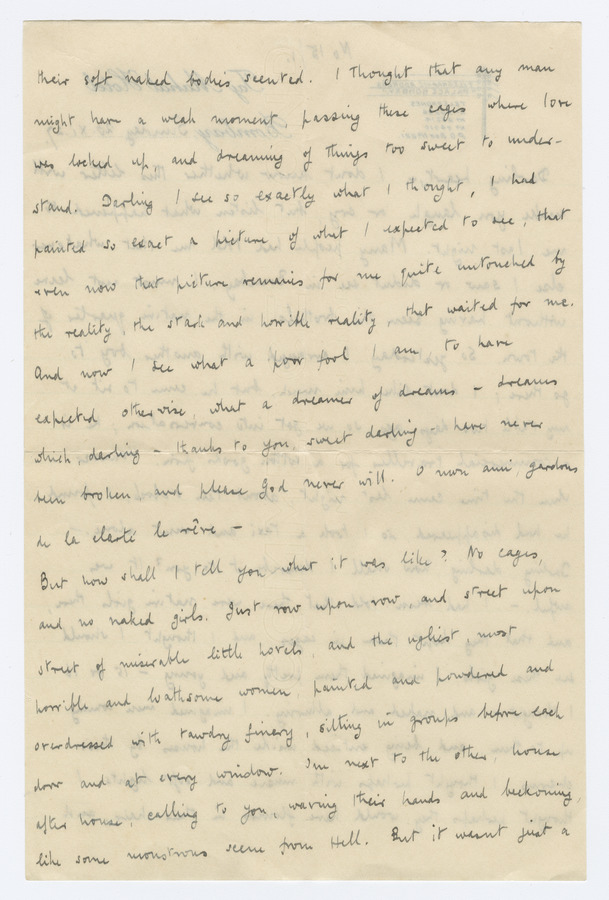 their soft naked bodies scented. I thought that any man
might have a weak moment, passing these cages where love
was locked up and dreaming of things too sweet to under-
stand. Darling I see so exactly what I thought, I had
painted so exact a picture of what I expected to see, that
even now that picture remains for me quite untouched by
the reality, the stark and horrible reality, that waited for me.
And now I see what a poor fool I am to have
expected otherwise, what a dreamer of dreams – dreams
which, darling – thanks to you, sweet darling – have never
been broken, and please God never will. O mon ami, gardons
de la clarté le rêve –
But how shall I tell you what it was like? No cages,
and no naked girls. Just row upon row, and street upon
street of miserable little hovels, and the ugliest, most
horrible and loathsome women, painted and powdered and
overdressed with tawdry finery, sitting in groups before each
door and at every window. One next to the other, house
after house, calling to you, waving their hands and beckoning,
like some monstrous scene from Hell. But it wasnt just a